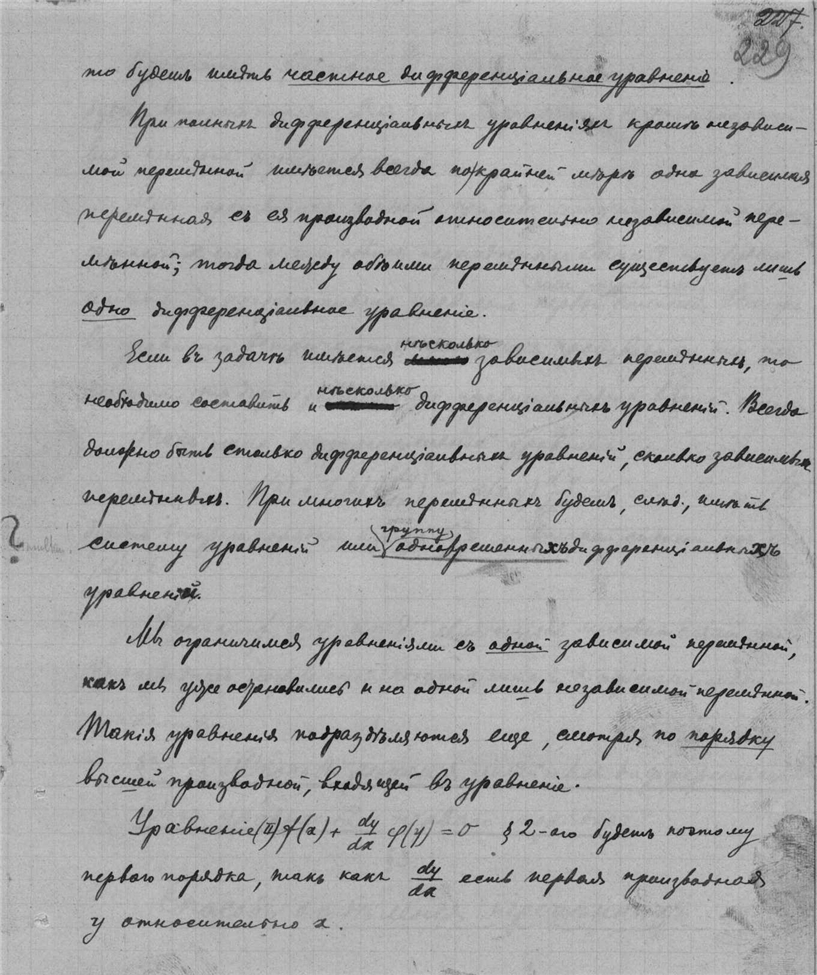 227.
229
то будемъ имѣть частное дифференціальное уравненіе.
При полныхъ дифференціальныхъ уравненіяхъ кромѣ независи-
мой перемѣнной имѣется всегда по крайней мѣрѣ одна зависимая
перемѣнная съ ея производной относительно независимой пере-
мѣнной; тогда между обѣими перемѣнными существуетъ лишь
одно дифференціальное уравненіе.
Если въ задачѣ имѣется нѣсколько зависимыхъ перемѣнныхъ, то
необходимо составить и нѣсколько дифференціальныхъ уравненій. Всегда
должно быть столько дифференціальныхъ уравненій, сколько зависимыхъ
перемѣнныхъ. При многихъ перемѣнныхъ будемъ, слѣд., имѣть
?
систему уравненій или группу одновременныхъ дифференціальныхъ
уравненій.
Мы ограничимся уравненіями съ одной зависимой перемѣнной,
какъ мы уже остановились и на одной лишь независимой перемѣнной.
Такія уравненія подраздѣляются еще, смотря по порядку
высшей производной, входящей въ уравненіе.
Уравненіе (II) f(x) + dy/dx φ(y) = 0 § 2-ого будетъ поэтому
первого порядка, такъ какъ dy/dx есть первая производная
y относительно x.